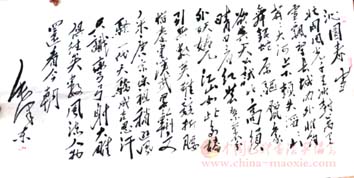 沁园春雪
北国风光千里冰封万里
雪飘望长城内外惟余莽
莽大河上下顿失滔滔山
舞银蛇原驰
欲与天公试比高须
晴日看红装素裹
分外妖娆江山如此多娇
引无数英雄竞折腰
惜秦皇汉武略输文
采唐宗宋祖稍逊风
骚一代天骄成吉思汗
只识弯弓射大雕
俱往矣数风流人物
还看今朝
毛泽东
china-maoxie.com